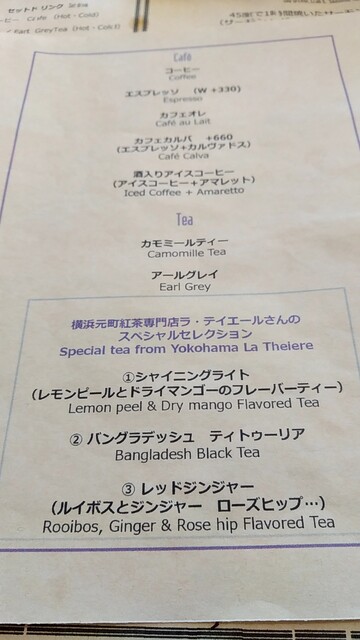 セットドリンク
(Hot・Cold)
Earl GreyTea (Hot・Cold)
Café
コーヒー
Coffee
エスプレッソ (W +330)
Espresso
カフェオレ
Café au Lait
カフェカルバ +660
(エスプレッソ+カルヴァドス)
Café Calva
酒入りアイスコーヒー
(アイスコーヒー+アマレット)
Iced Coffee + Amaretto
Tea
カモミールティー
Camomille Tea
アールグレイ
Earl Grey
横浜元町紅茶専門店ラ・テイエールさんの
スペシャルセレクション
Special tea from Yokohama La Theiere
①シャイニングライト
(レモンピールとドライマンゴーのフレーバーティー)
Lemon peel & Dry mango Flavored Tea
② バングラデッシュ ティトゥーリア
Bangladesh Black Tea
③ レッドジンジャー
(ルイボスとジンジャー ローズヒップ…)
Rooibos, Ginger & Rose hip Flavored Tea